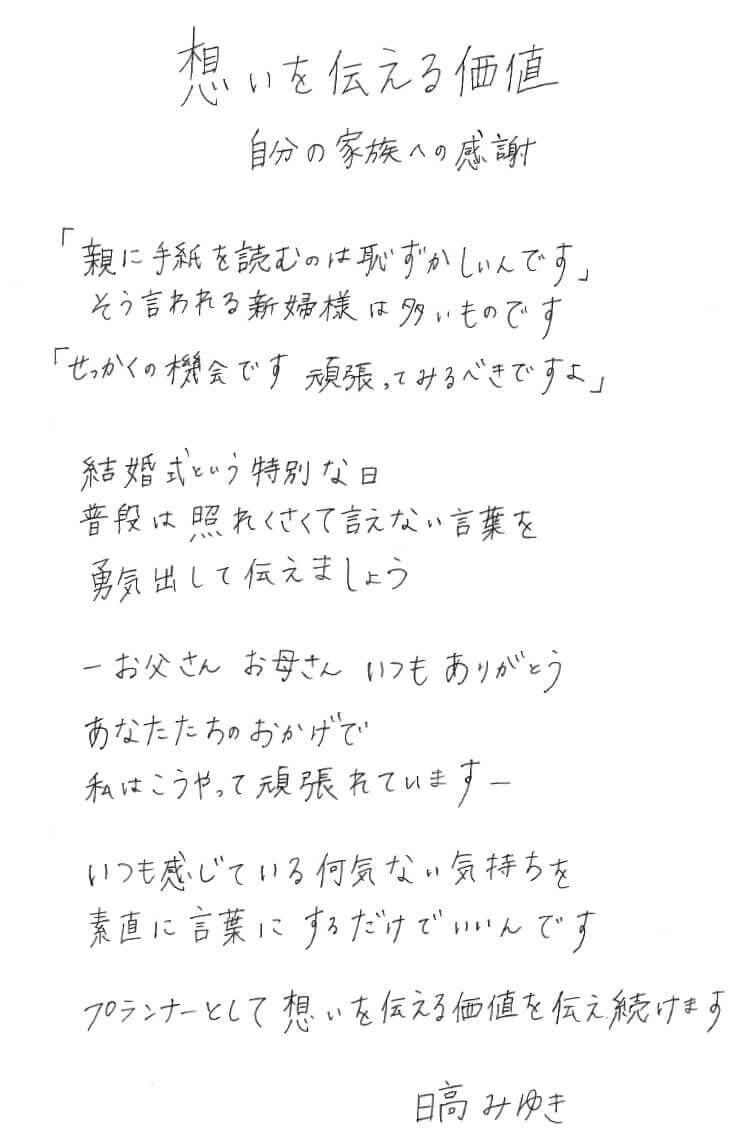 想いを伝える価値
自分の家族への感謝
「親に手紙を読むのは恥ずかしいんです」
そう言われる新婦様は多いものです
「せっかくの機会です 頑張ってみるべきですよ」
結婚式という特別な日
普段は照れくさくて言えない言葉を
勇気出して伝えましょう
－お父さん お母さん いつもありがとう
あなたたちのおかげで
私はこうやって頑張れています－
いつも感じている何気ない気持ちを
素直に言葉にするだけでいいんです
プランナーとして想いを伝える価値を伝え続けます
日高みゆき